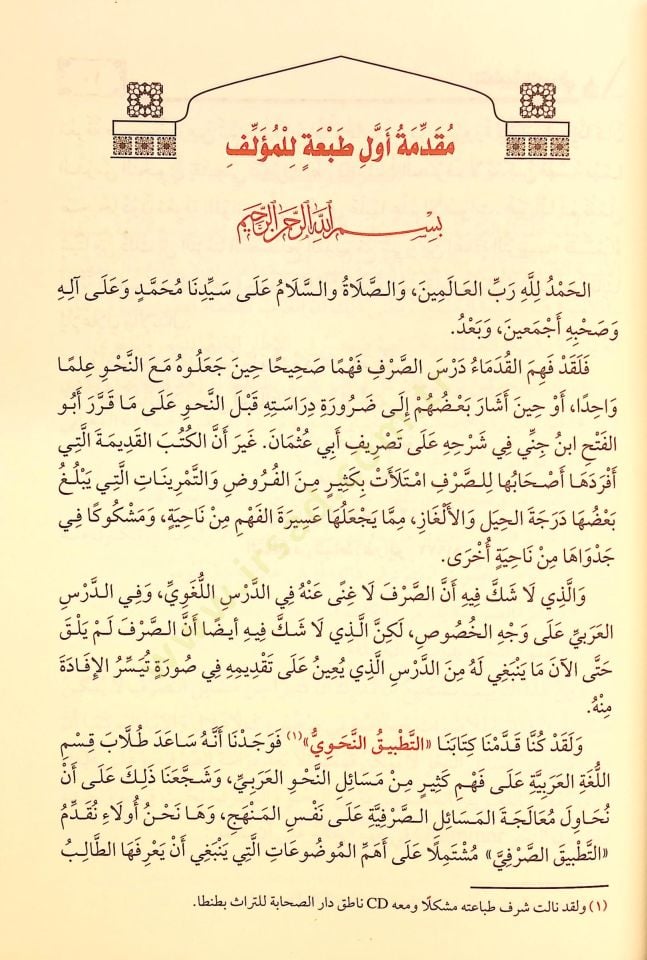 مُقَدِّمَةُ أَوَّلِ طَبْعَةٍ لِلْمُؤَلِّفِ
بِسْمِ اللَّهِ الرَّحْمَنِ الرَّحِيمِ
الحَمْدُ لِلَّهِ رَبِّ العَالَمِينَ، وَالصَّلَاةُ والسَّلَامُ عَلَى سَيِّدِنَا مُحَمَّدٍ وَعَلَى آلِهِ
وَصَحْبِهِ أَجْمَعينَ، وَبَعْدُ.
فَلَقَدْ فَهِمَ القُدَمَاءُ دَرْسَ الصَّرْفِ فَهْمًا صَحِيحًا حِينَ جَعَلُوهُ مَعَ النَّحْوِ عِلمًا
وَاحِدًا، أَوْ حِينَ أَشَارَ بَعْضُهُمْ إِلَى ضَرُورَةِ دِرَاسَتِهِ قَبْلَ النَّحْوِ عَلَى مَا قَرَّرَ أَبُو
الفَتْحِ ابنُ جِنِّي فِي شَرْحِهِ عَلَى تَصْرِيفِ أَبِي عُثْمَانَ. غَيرَ أَنَّ الكُتُبَ القَدِيمَةَ الَّتِي
أَفْرَدَهَا أَصْحَابُهَا لِلصَّرْفِ امْتَلَأَتْ بِكَثِيرٍ مِنَ الفُرُوضِ وَالتَّمْرِينَاتِ الَّتِي يَبْلُغُ
بَعْضُهَا دَرَجَةَ الحِيَلِ وَالأَلْغَازِ، مِمَّا يَجْعَلُهَا عَسِيرَةَ الفَهْمِ مِنْ نَاحِيَةٍ، وَمَشْكُوكًا فِي
جَدْوَاهَا مِنْ نَاحِيَةٍ أُخْرَى.
وَالَّذِي لَا شَكَّ فِيهِ أَنَّ الصَّرْفَ لَا غِنَى عَنْهُ فِي الدَّرْسِ اللُّغَوِيِّ، وَفِي الدَّرْسِ
العَرَبِيِّ عَلَى وَجْهِ الخُصُوصِ، لَكِنَّ الَّذِي لَا شَكَّ فِيهِ أَيضًا أَنَّ الصَّرْفَ لَمْ يَلْقَ
حَتَّى الآنَ مَا يَنْبَغِي لَهُ مِنَ الدَّرْسِ الَّذِي يُعِينُ عَلَى تَقْدِيمِهِ فِي صُورَةٍ تُيَسِّرُ الإِفَادَةَ
مِنْهُ.
وَلَقَدْ كُنَّا قَدَّمْنَا كِتَابَنَا «التَّطْبِيقُ النَّحَوِيُّ»(١) فَوَجَدْنَا أَنَّهُ سَاعَدَ طُلَّابَ قِسْمِ
اللُّغَةِ العَرَبِيَّةِ عَلَى فَهْمِ كَثِيرٍ مِنْ مَسَائِلِ النَّحْوِ العَرَبِيِّ، وَشَجَّعَنَا ذَلِكَ عَلَى أَنْ
نُحَاوِلَ مُعَالَجَةَ المَسَائِلِ الصَّرْفِيَّةِ عَلَى نَفْسِ المَنْهَجِ، وَهَا نَحْنُ أُولَاءِ نُقَدِّمُ
«التَّطْبِيقَ الصَّرْفِيَّ» مُشْتَمِلًا عَلَى أَهَمِّ المَوْضُوعَاتِ الَّتِي يَنْبَغِي أَنْ يَعْرِفَهَا الطَّالِبُ
(١) ولقد نالت شرف طباعته مشكلًا ومعه CD ناطق دار الصحابة للتراث بطنطا.